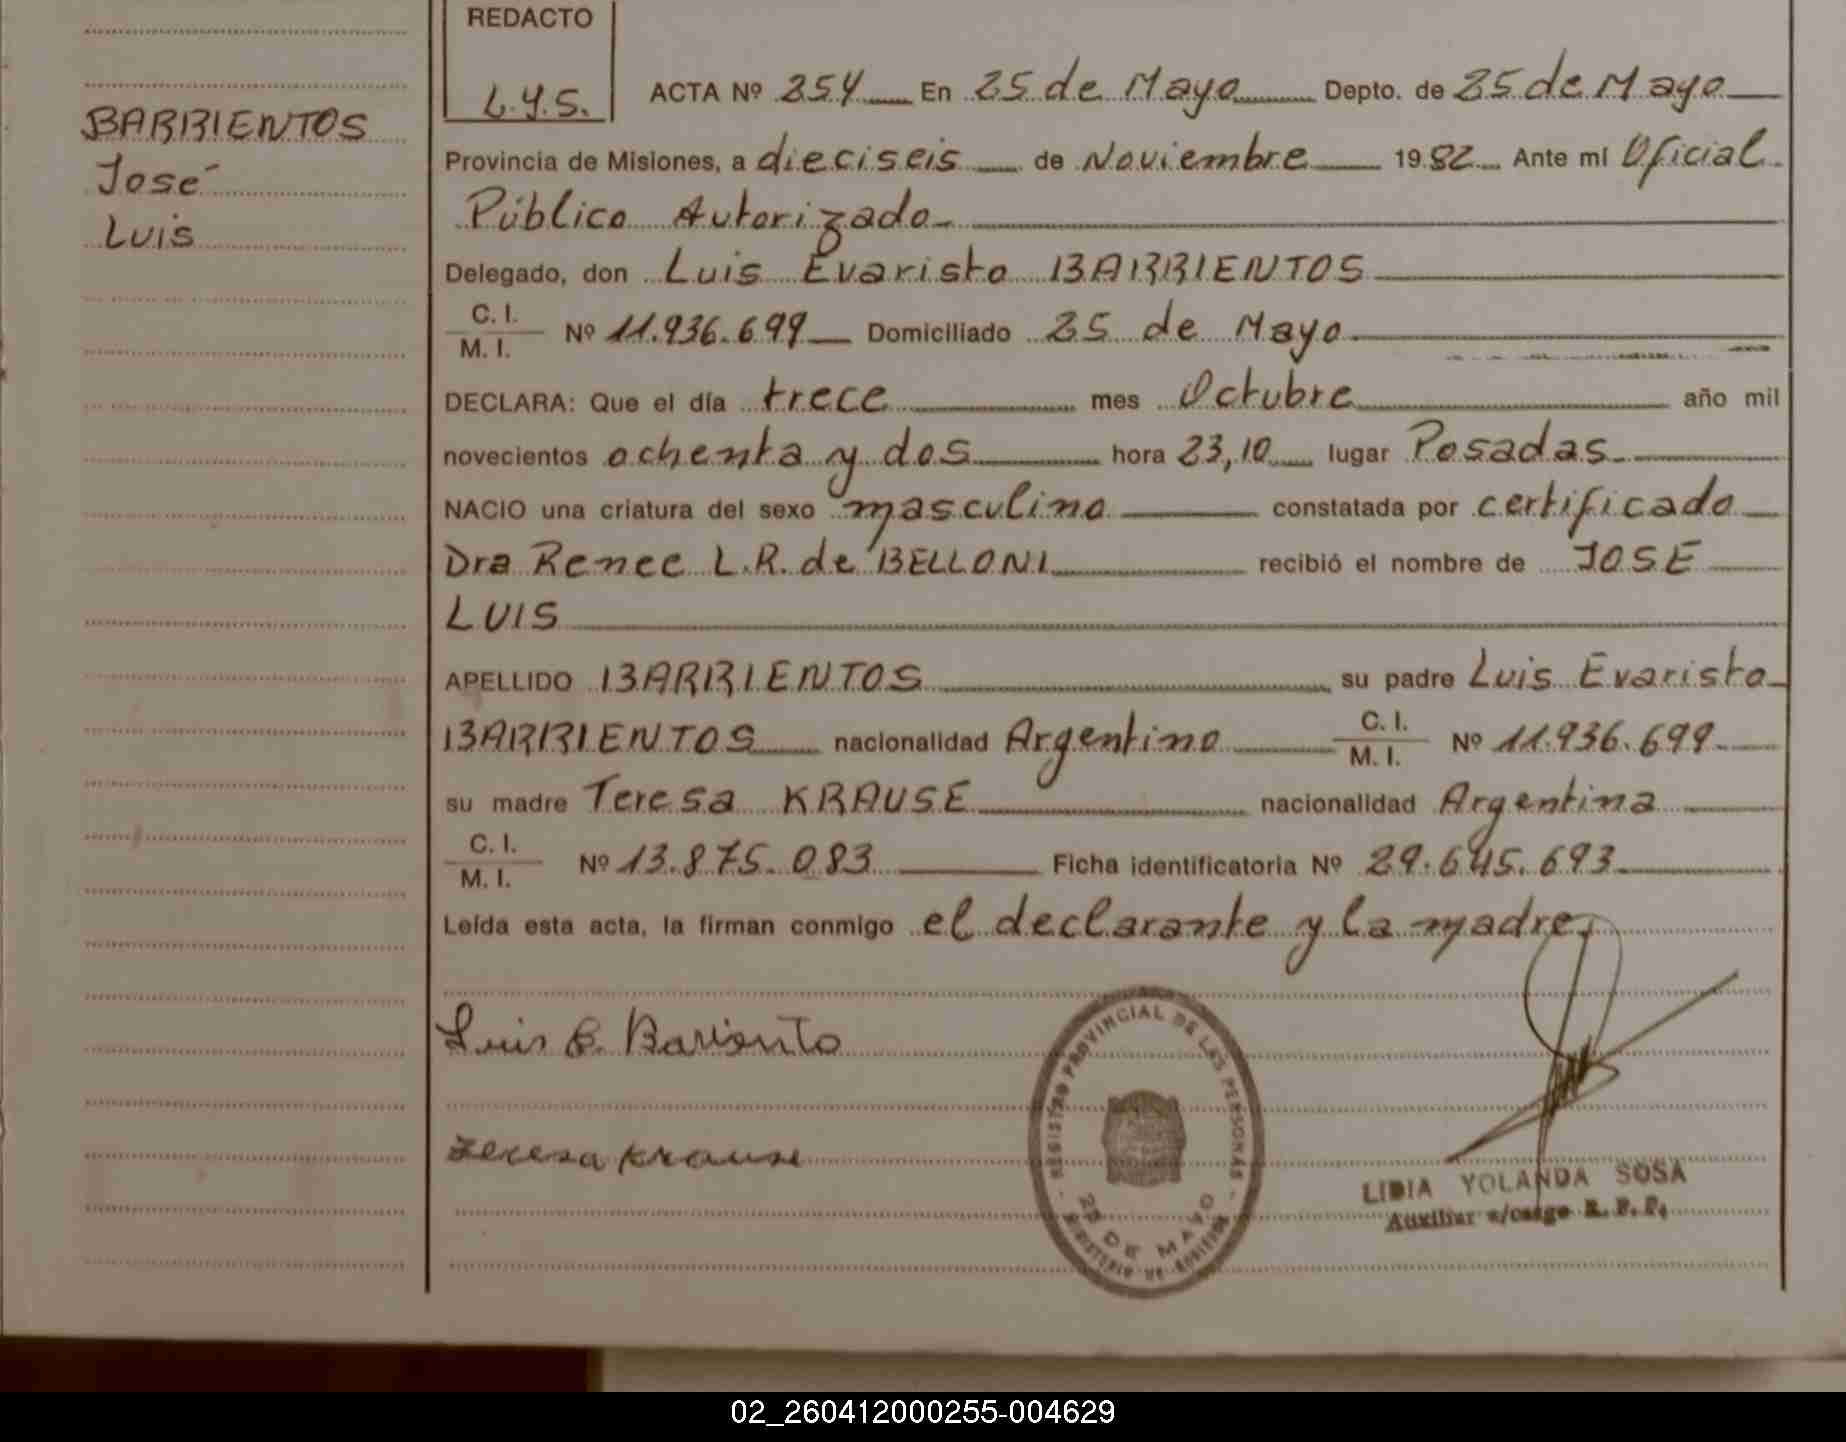 REDACTO
L.Y.S.
BARRIENTOS
José
Luis
ACTA Nº 254 En 25 de Mayo Depto. de 25 de Mayo
Provincia de Misiones, a dieciseis de Noviembre 1982 Ante mi Oficial
Público Autorizado
Delegado, don Luis Evaristo BARRIENTOS
C. I.
M. I. Nº 11.936.699 Domiciliado 25 de Mayo
DECLARA: Que el día trece mes Octubre año mil
novecientos ochenta y dos hora 23,10 lugar Posadas
NACIO una criatura del sexo masculino constatada por certificado
Dra Renee L.R. de BELLONI recibió el nombre de JOSE
LUIS
APELLIDO BARRIENTOS su padre Luis Evaristo
BARRIENTOS nacionalidad Argentino C. I.
M. I. Nº 11.936.699
su madre Teresa KRAUSE nacionalidad Argentina
C. I.
M. I. Nº 13.875.083 Ficha identificatoria Nº 29.645.693
Leída esta acta, la firman conmigo el declarante y la madre,
Luis E. Bariento
Teresa Krause
REGISTRO PROVINCIAL DE LAS PERSONAS
25 DE MAYO
MINISTERIO DE GOBIERNO
LIDIA YOLANDA SOSA
Auxiliar a/cargo R. P. P.
02_260412000255-004629